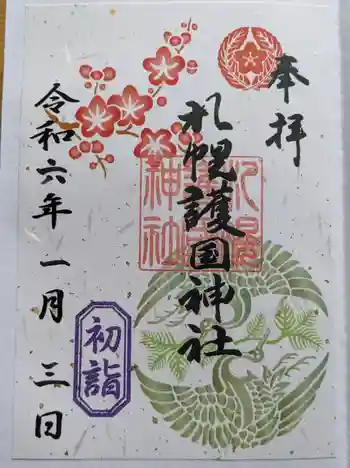 奉拝
札幌護国神社
札幌護国神社
初詣
令和六年一月三日